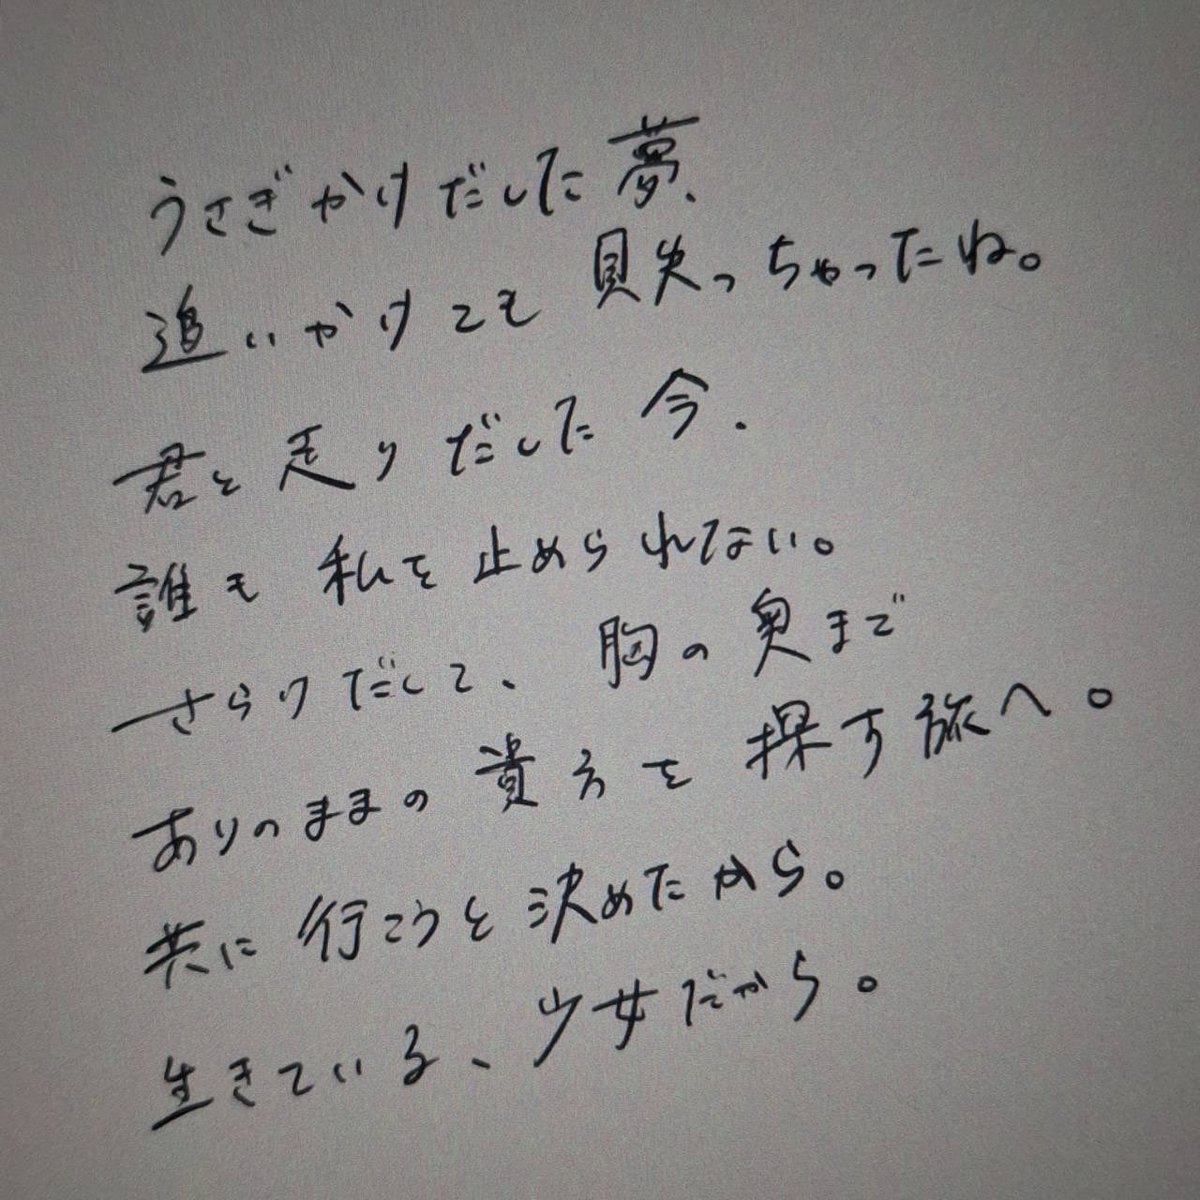 うさぎかけだした夢、
追いかけても見失っちゃったね。
君と走りだした今、
誰も私を止められてない。
さらけだして、胸の奥まで
ありのままの貴方を探す旅へ。
共に行こうと決めたから。
生きている、少女だから。